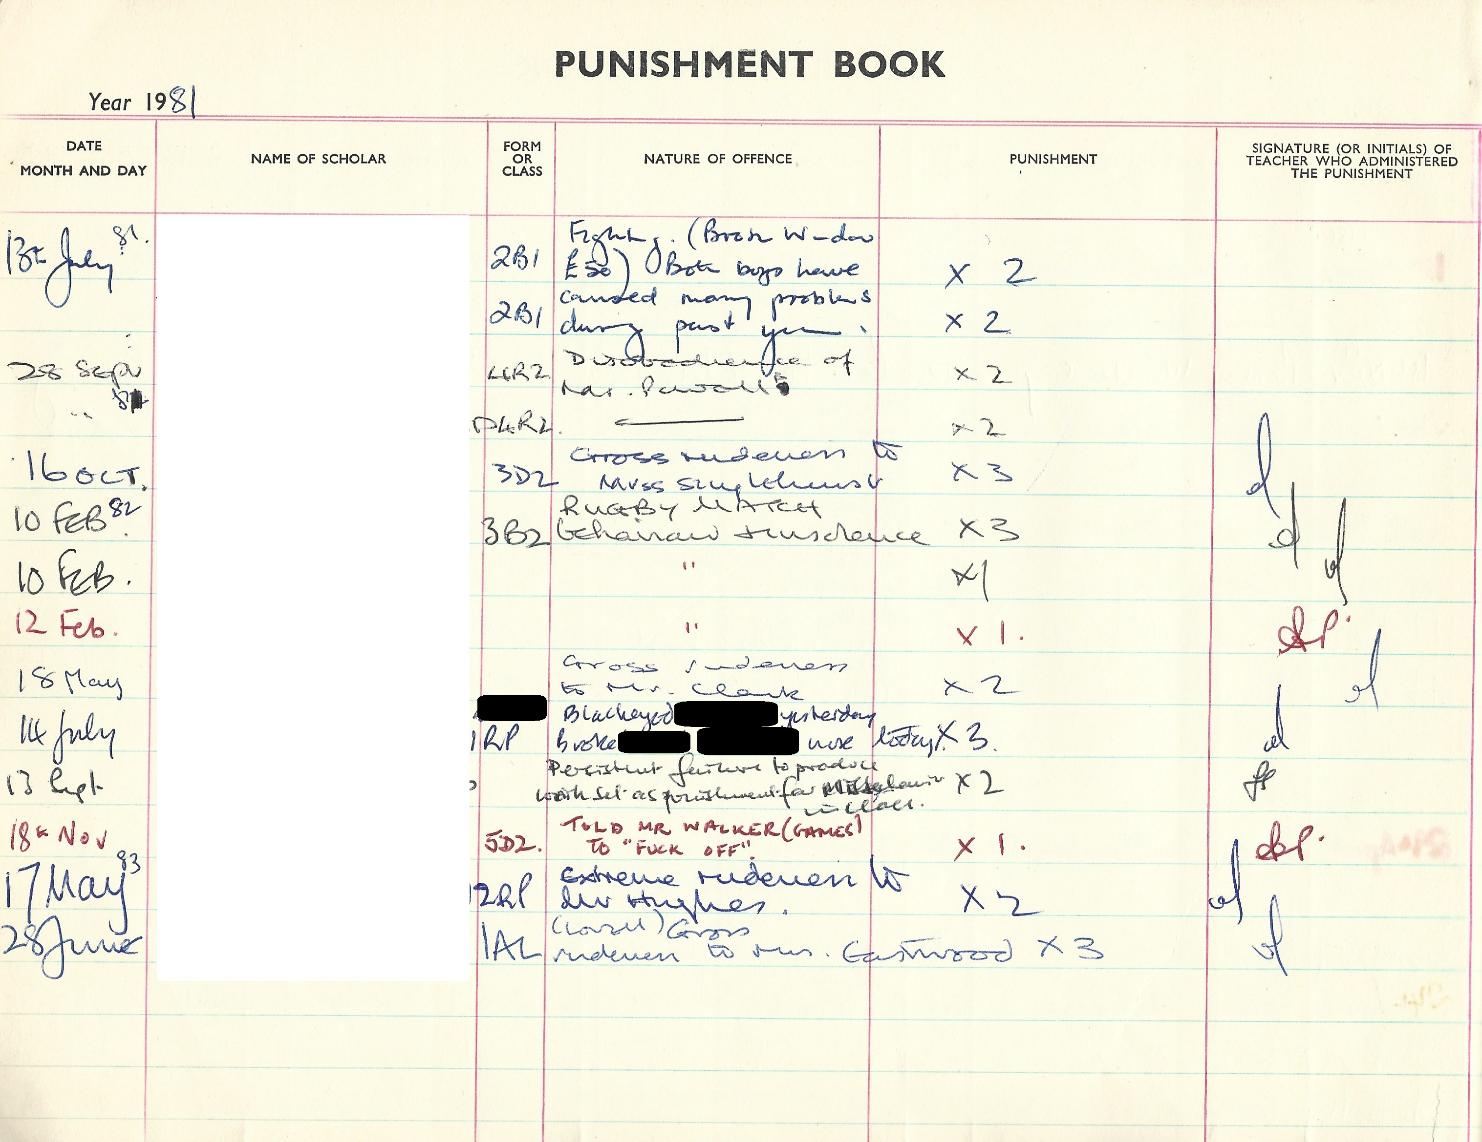 PUNISHMENT BOOK
Year 1981
DATE
MONTH AND DAY
NAME OF SCHOLAR
FORM
OR
CLASS
NATURE OF OFFENCE
PUNISHMENT
SIGNATURE (OR INITIALS) OF
TEACHER WHO ADMINISTERED
THE PUNISHMENT
13th July 81.
2B1
Fighting. (Broke Window
£50) Both boys have
x 2
2B1
caused many problems
during past year.
x 2
28 Sept
4R2
Disobedience of
Mr.
x 2
"
4R2.
x 2
16 OCT.
3D2
Gross rudeness to
Miss
x 3
10 FEB 82
3B2
RUGBY MATCH
behaviour + insolence
x 3
10 FEB.
"
x 1
12 Feb.
"
x 1.
18 May
Gross rudeness
to Mr. Clark
x 2
14 July
1RP
Blackeyed yesterday
Broke nose today x 3.
13 Sept
Persistent failure to produce
work set as punishment for
in class.
x 2
18th Nov
5D2.
TOLD MR WALKER (GAMES)
TO "FUCK OFF".
x 1.
17 May 83
2RP
Extreme rudeness to
Mr Hughes.
x 2
28 June
1AL
Gross
rudeness to Mrs. Eastwood x 3